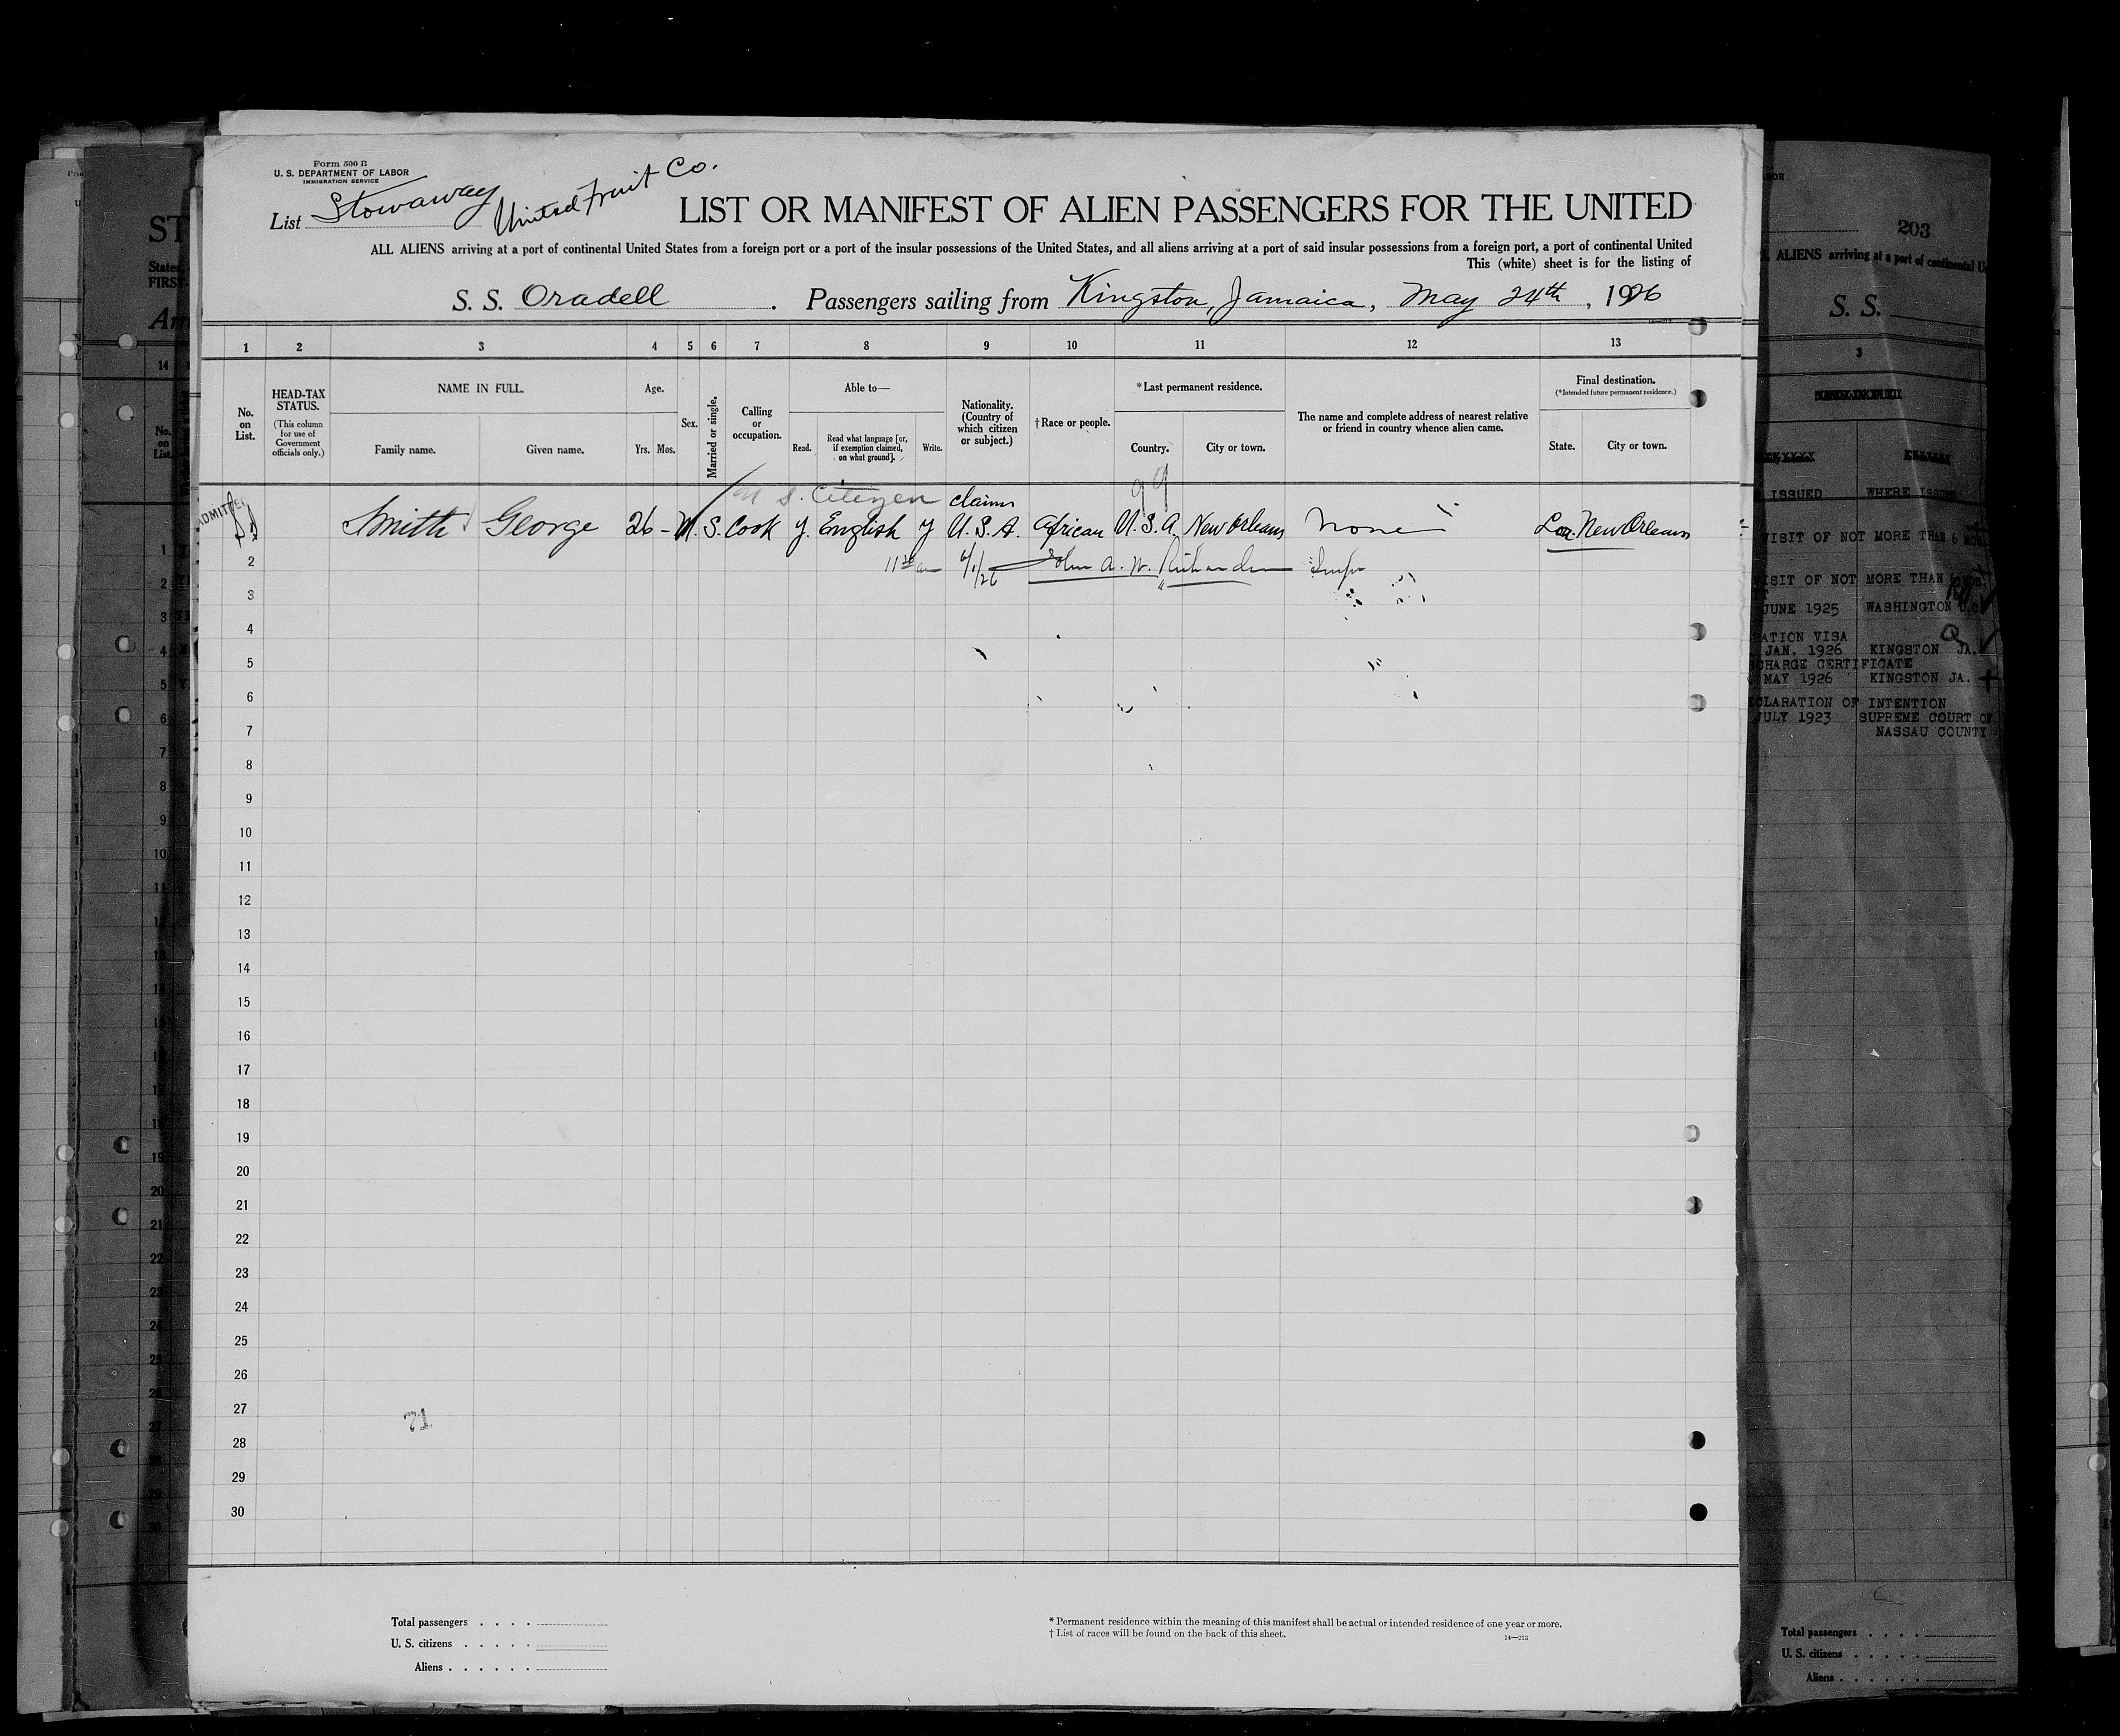 Form 500 B
U. S. DEPARTMENT OF LABOR
IMMIGRATION SERVICE
List Stowaway United Fruit Co.
LIST OR MANIFEST OF ALIEN PASSENGERS FOR THE UNITED
ALL ALIENS arriving at a port of continental United States from a foreign port or a port of the insular possessions of the United States, and all aliens arriving at a port of said insular possessions from a foreign port, a port of continental United
This (white) sheet is for the listing of
S. S. Oradell. Passengers sailing from Kingston, Jamaica, May 24th, 1926
1 2 3 4 5 6 7 8 9 10 11 12 13
No. on List.
HEAD-TAX STATUS.
(This column for use of Government officials only.)
NAME IN FULL.
Family name. Given name.
Age.
Yrs. Mos.
Sex.
Married or single.
Calling or occupation.
Able to—
Read. Read what language [or, if exemption claimed, on what ground]. Write.
Nationality. (Country of which citizen or subject.)
†Race or people.
*Last permanent residence.
Country. City or town.
The name and complete address of nearest relative or friend in country whence alien came.
Final destination.
(*Intended future permanent residence.)
State. City or town.
U. S. Citizen claims 99
ADMITTED Smith George 26 - M. S. Cook y. English y U. S. A. African U. S. A. New Orleans none La. New Orleans
1
2 6/1/26 John A. W. Richardson
3
4
5
6
7
8
9
10
11
12
13
14
15
16
17
18
19
20
21
22
23
24
25
26
27
71
28
29
30
Total passengers . . . .
U. S. citizens . . . . .
Aliens . . . . . .
* Permanent residence within the meaning of this manifest shall be actual or intended residence of one year or more.
† List of races will be found on the back of this sheet.
14—213
203
ALIENS arriving at a port of continental
S. S.
3
ISSUED WHERE ISSUED
VISIT OF NOT MORE THAN 6 MOS.
VISIT OF NOT MORE THAN
JUNE 1925 WASHINGTON D.C.
VISA
JAN. 1926 KINGSTON JA.
CERTIFICATE
MAY 1926 KINGSTON JA.
DECLARATION OF INTENTION
JULY 1923 SUPREME COURT OF
NASSAU COUNTY
Total passengers . . . .
U. S. citizens . . . . .
Aliens . . . . . .